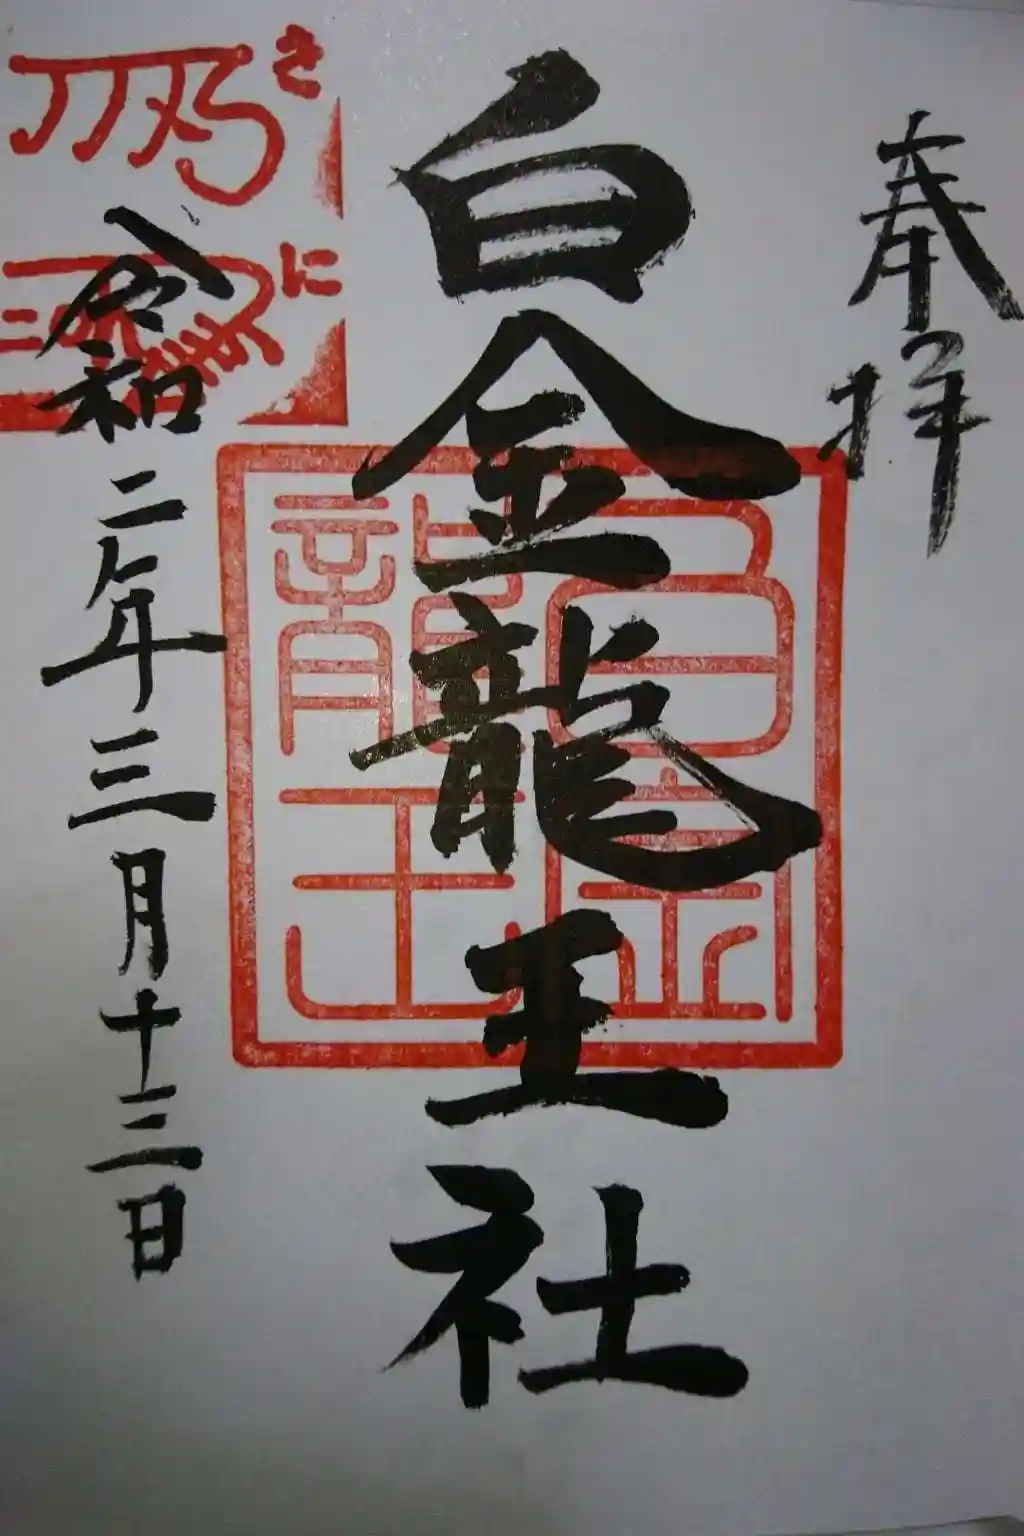 奉拝
白金龍王社
白金
龍王
令和二年三月十三日
さ
に